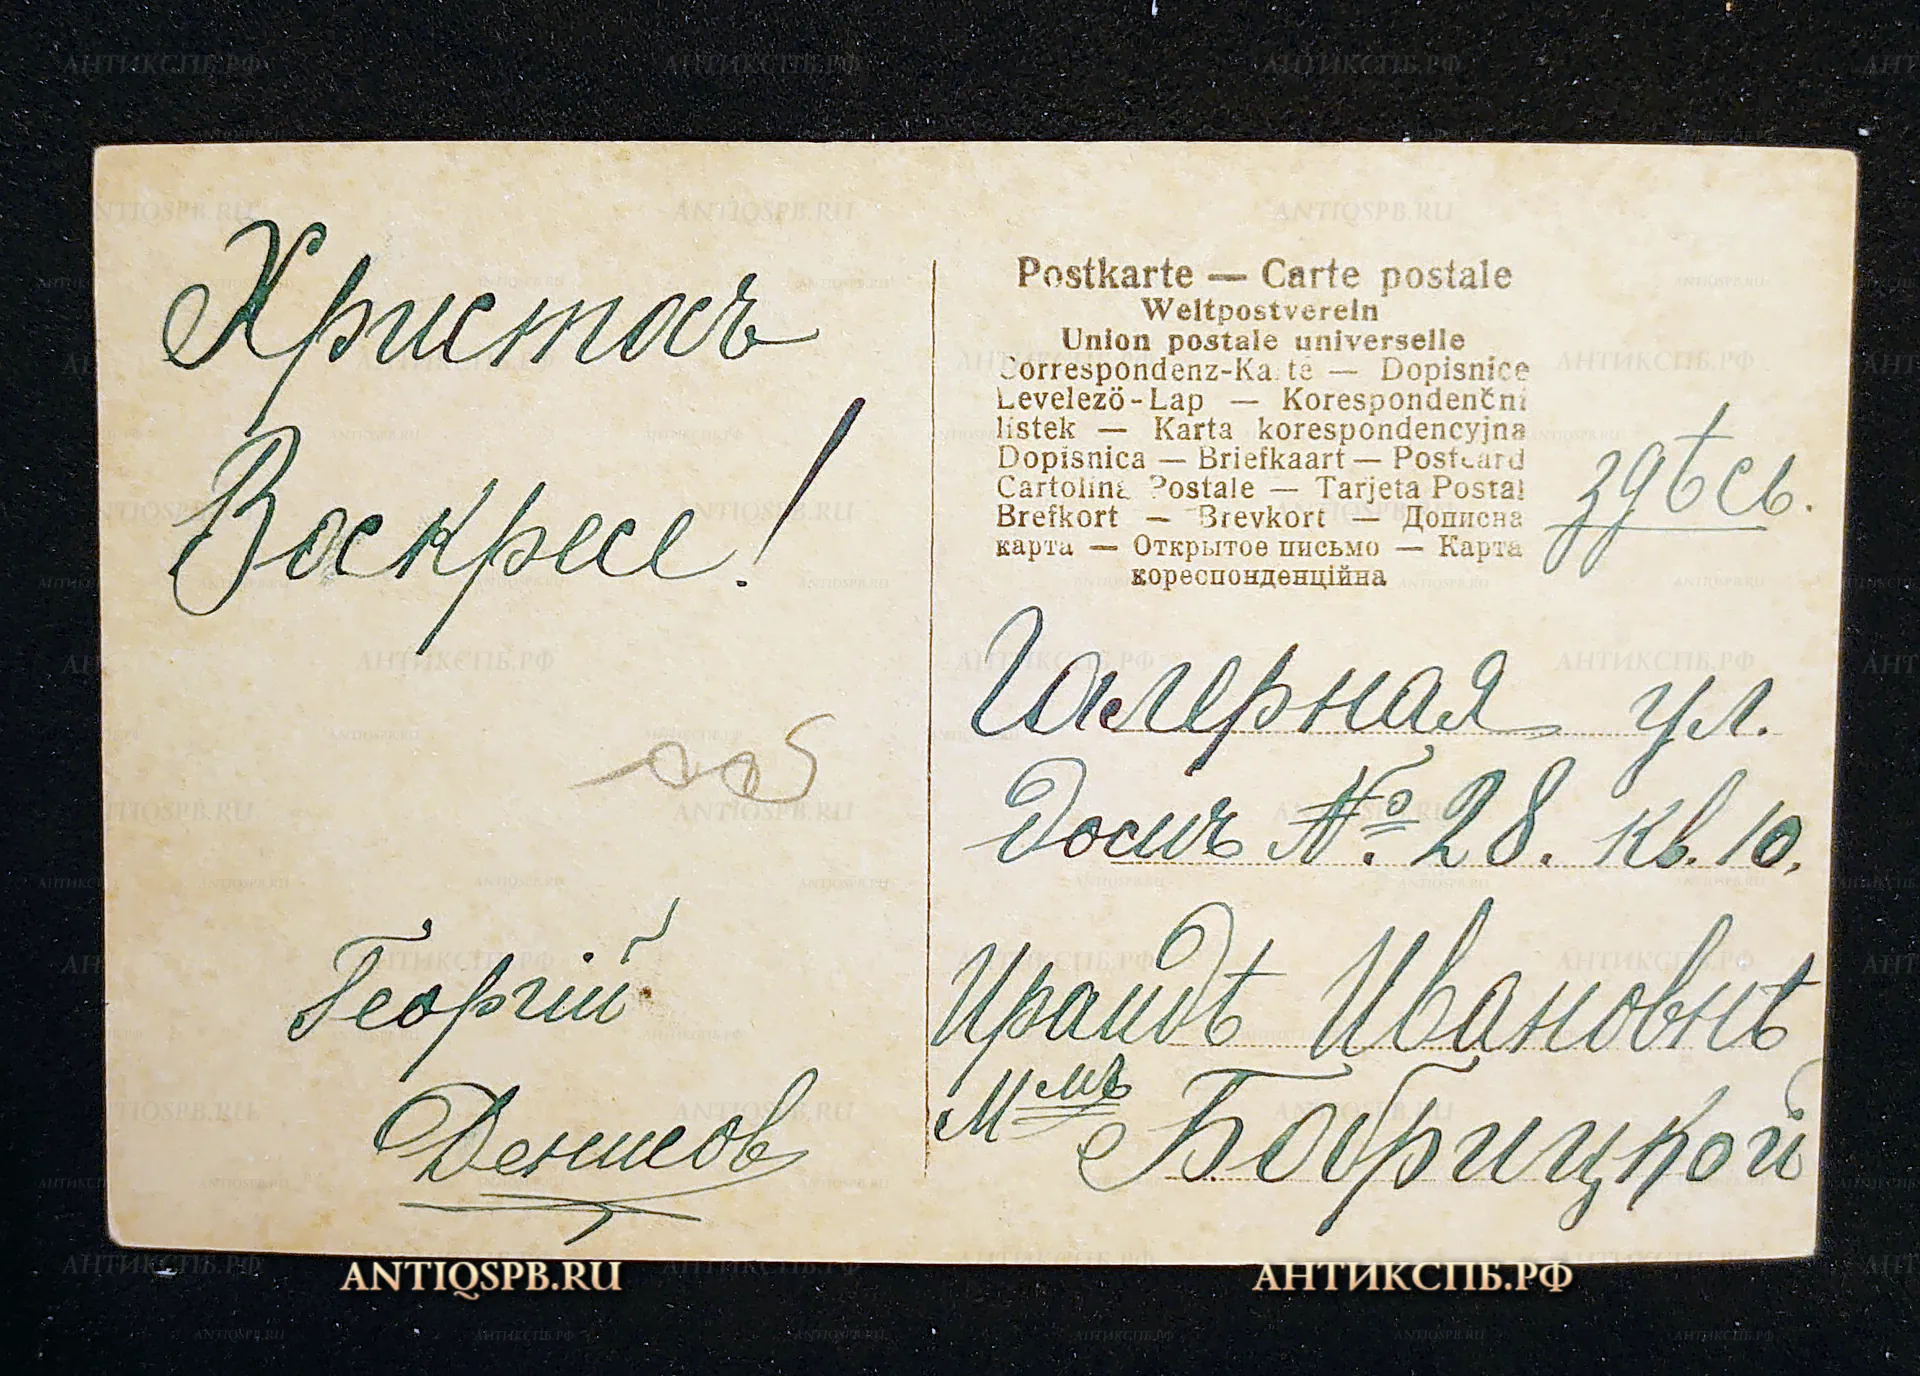 Христосъ
Воскресе!
Георгій
Денисовъ
Postkarte — Carte postale
Weltpostverein
Union postale universelle
Correspondenz-Karte — Dopisnice
Levelező-Lap — Korespondenčni
listek — Karta korespondencyjna
Dopisnica — Briefkaart — Postcard
Cartolina Postale — Tarjeta Postal
Brefkort — Brevkort — Дописна
карта — Открытое письмо — Карта
кореспонденційна
здѣсь.
Галерная ул.
Домъ № 28. кв. 10.
Ираидѣ Ивановнѣ
Бобрицкой
ANTIQSPB.RU
АНТИКСПБ.РФ